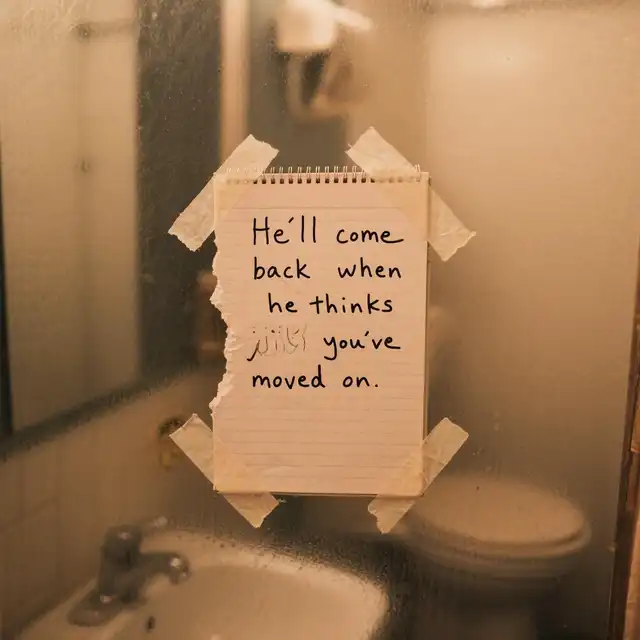 He'll come
back when
he thinks
you've
moved on.